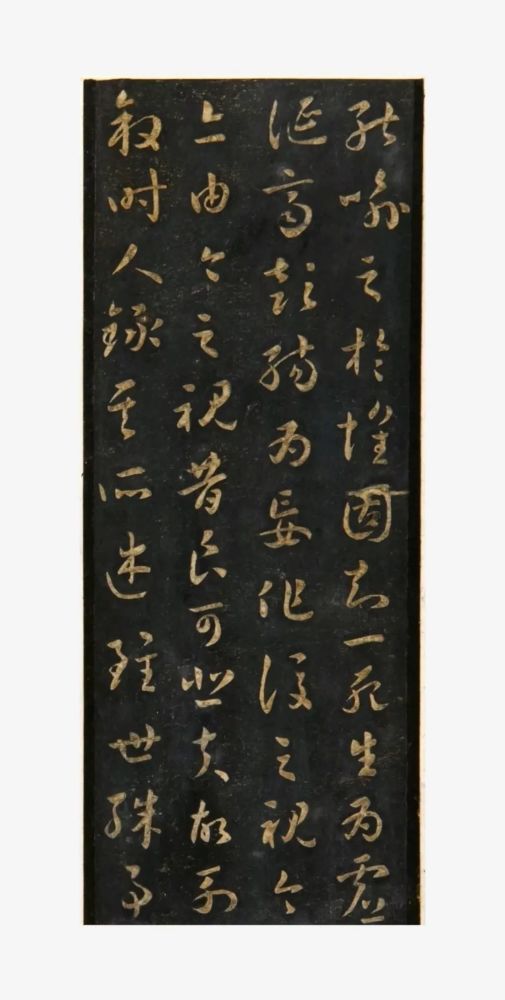 能喻之於懷固知一死生為虛
誕齊彭殤為妄作後之視今
亦由今之視昔良可悲夫故列
叙時人錄其所述雖世殊事